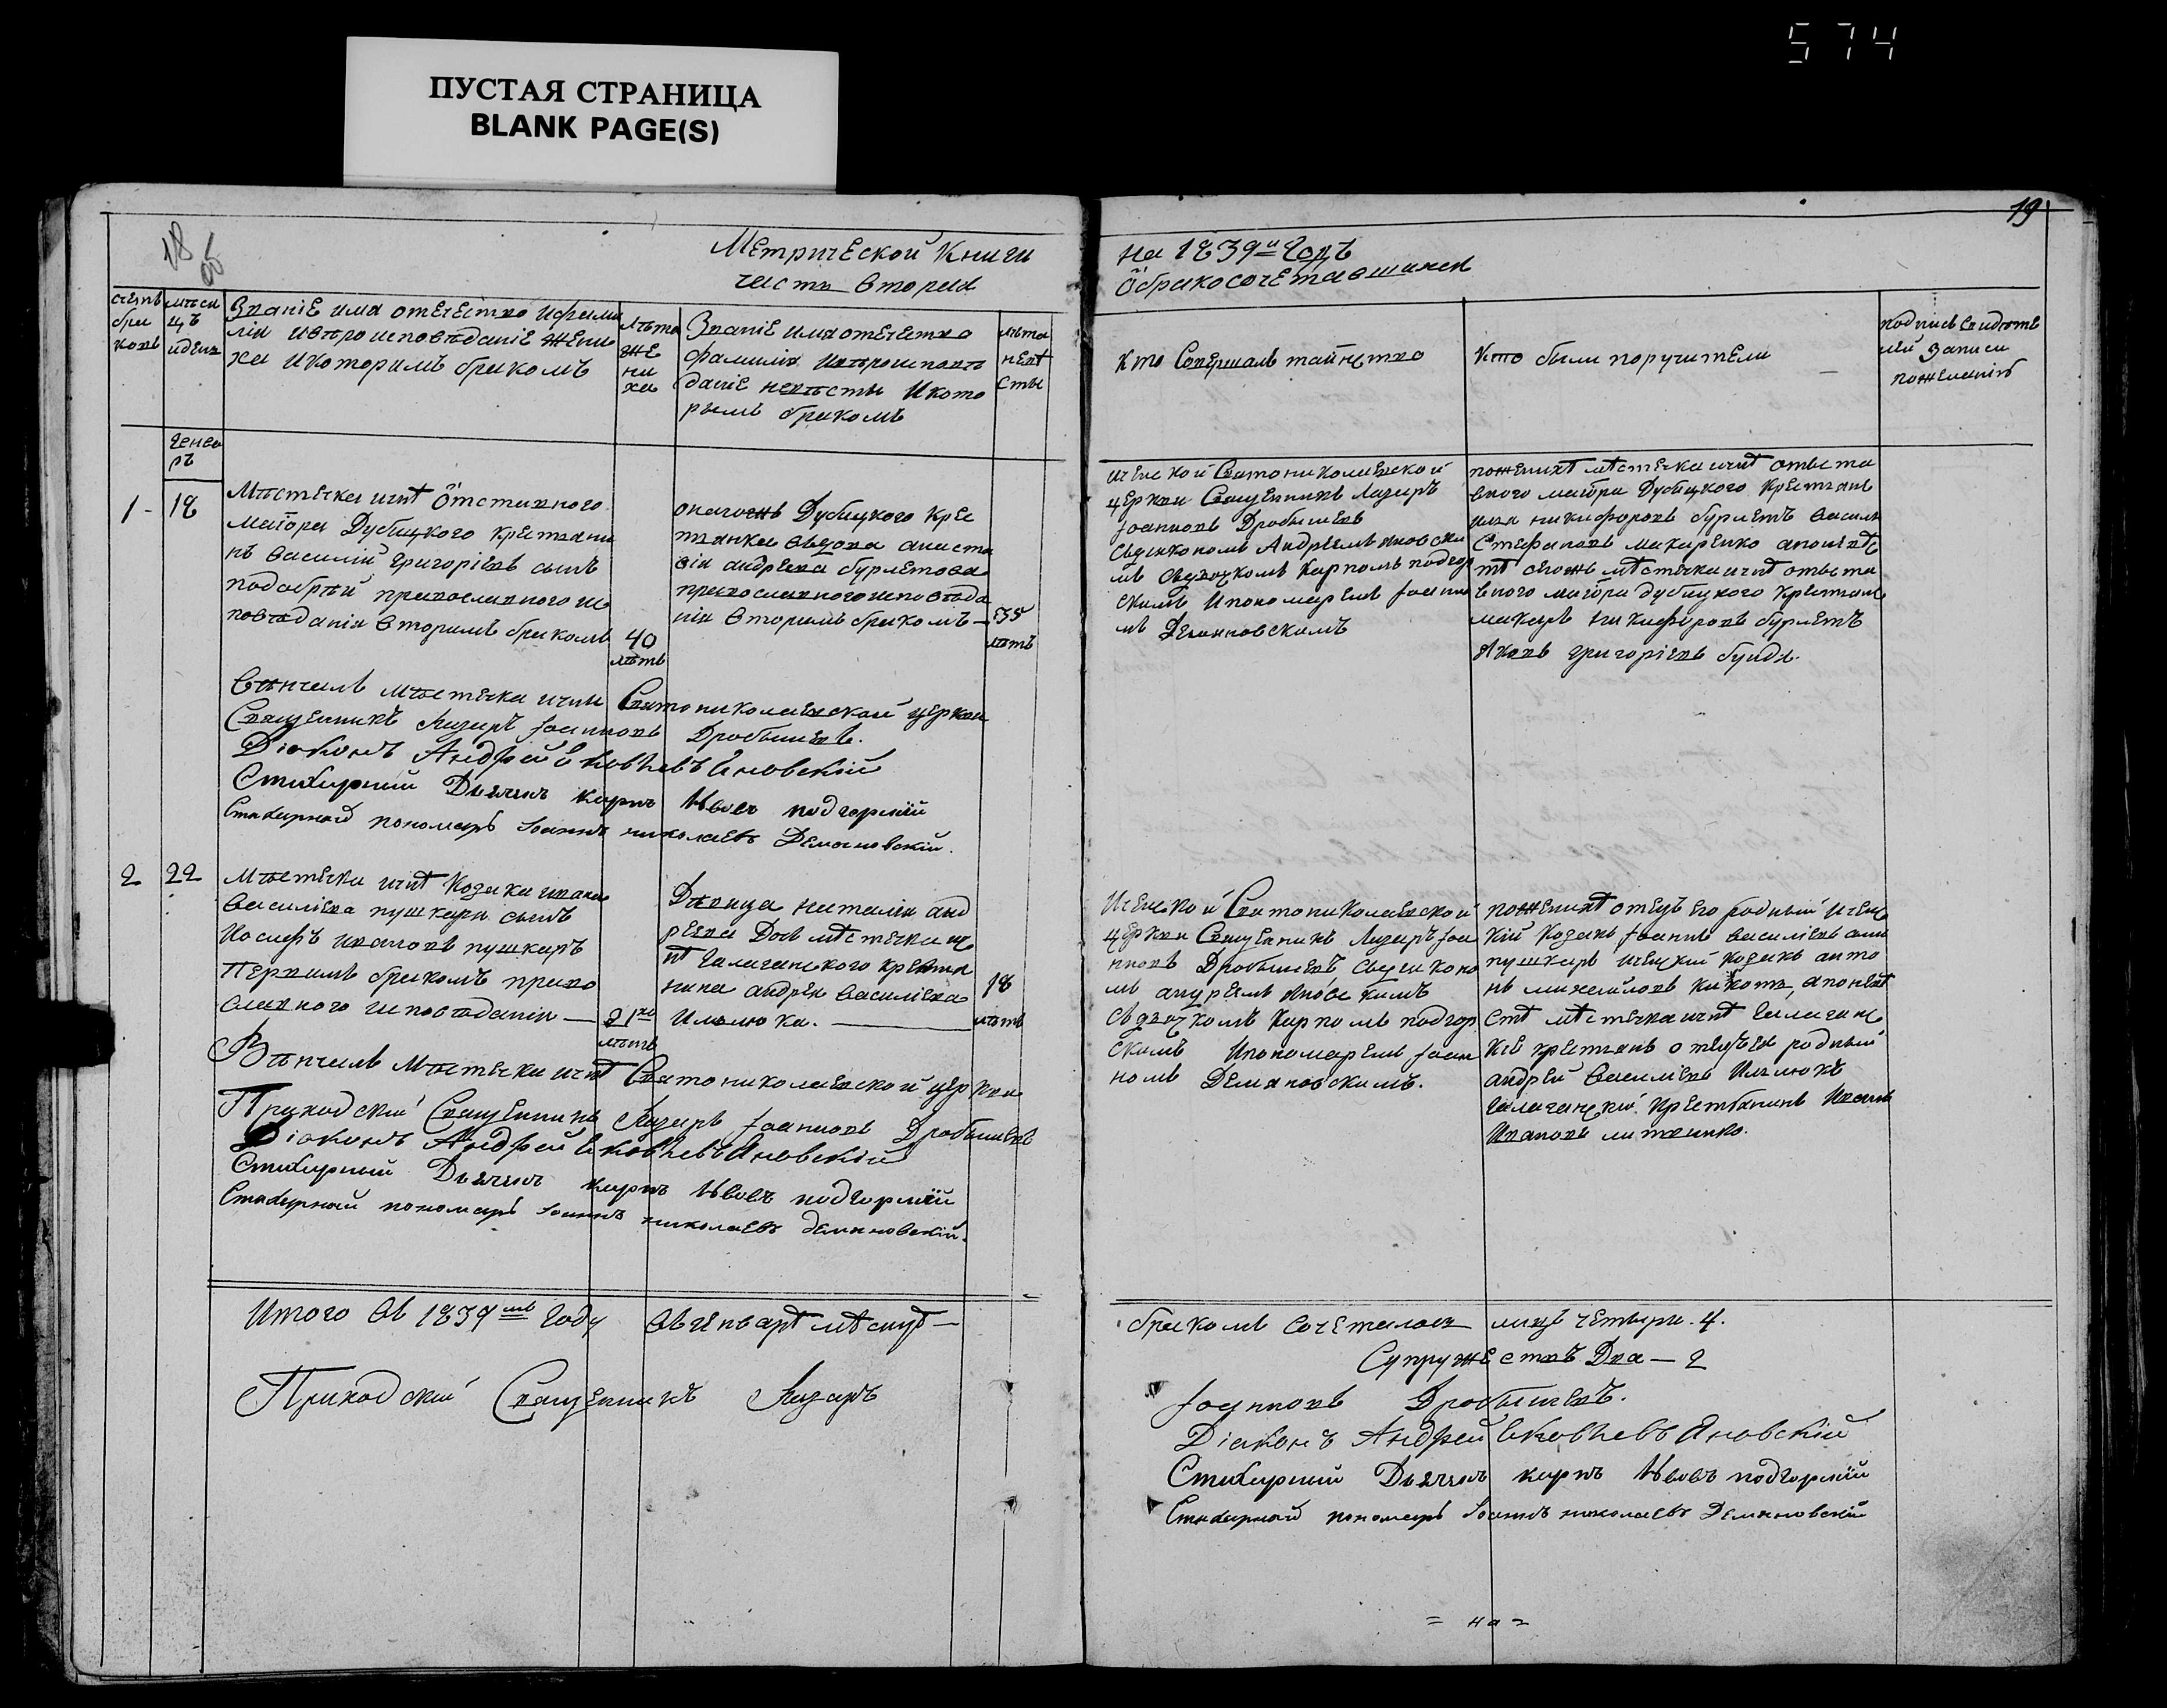 574
ПУСТАЯ СТРАНИЦА
BLANK PAGE(S)
19
Метрической Книги
часть вторая
на 1839й Годъ
о бракосочетавшихся
счетъ браковъ
месяцъ и день
Званіе имя отечество и фами
лія и вѣроисповѣданіе жени
ха и которимъ бракомъ
лѣта жениха
Званіе имя отечество
фамилія и вѣроисповѣ
даніе невѣсты и кото
рымъ бракомъ
лѣта невѣсты
кто Совершалъ таинство
кто были поручители
подпись свидѣте
лей записи
по желанію
генварь
1 - 18
Мѣстечка ичнѣ Отставного
маіора Дубицкого крестьяни
нъ василій григоріевъ сынъ
православного ис
повѣданія вторимъ бракомъ
40
лѣтъ
оного жъ Дубицкого крес
тьянка вдова анаста
сія андреева бурлетова
православного исповѣда
нія вторимъ бракомъ —
35
лѣтъ
иченской Святониколаевской
церкви Священникъ Лазаръ
Іоанновъ Дробышевъ
съ діакономъ Андреемъ яновски
мъ съ дячкомъ Карпомъ подгор
скимъ и пономаремъ Іоанно
мъ Демяновскимъ
по женихѣ мѣстечка ичнѣ отста
вного маіора Дубицкого крестьяне
илья никифоровъ бурлетъ василь
Стефановъ макаренко а по невѣс
тѣ сегожъ мѣстечка ичнѣ отста
вного маіора дубицкого крестьяне
макаръ никифоровъ бурлетъ
Яковъ григоріевъ бунда.
Вѣнчалъ мѣстечка ични Святониколаевской церкви
Священникъ Лазаръ Іоанновъ Дробышевъ.
Діаконъ Андрей Яковлевъ Яновскій
Стихарний Дьячокъ карпъ Львовъ подгорскій
Стихарной пономарь Іоаннъ николаевъ Демяновскій.
2 22
Мѣстечка ичнѣ козака ивана
василіева пушкаря сынъ
Иосифъ ивановъ пушкаръ
Первимъ бракомъ право
славного исповѣданія —
21
лѣтъ
Дѣвица наталія анд
реева Дочь мѣстечка ич
нѣ галаганского крестья
нина андрея василіева
Шмлюка. —
18
лѣтъ
Иченской Святониколаевской
церкви Священникъ Лазаръ Іоа
нновъ Дробышевъ съ діаконо
мъ андреемъ Яновскимъ
съ дячкомъ карпомъ подгор
скимъ и пономаремъ Іоан
номъ Демяновскимъ.
по женихѣ отецъ его родный иченс
кій козакъ Іоаннъ василіевъ сынъ
пушкаръ иченскій козакъ анто
нъ михайловъ кикоть, а по невѣ
стѣ мѣстечка ичнѣ галаганс
кіе крестьяне отецъ ея родный
андрей василіевъ
галаганскій крестьянинъ Иванъ
Ивановъ литвинко.
Вѣнчалъ Мѣстечка ичнѣ Святониколаевской церкви
Приходскій Священникъ Лазаръ Іоанновъ Дробышевъ
Діаконъ Андрей Яковлевъ Яновскій
Стихарный Дьячокъ карпъ Львовъ подгорскій
Стихарный пономарь Іоаннъ николаевъ демяновскій.
Итого въ 1839мъ Году въ генварѣ мѣсяцѣ —
бракомъ сочеталось лицъ четыри. 4.
Супружествъ Два — 2
Приходскій Священникъ Лазаръ
Іоанновъ Дробышевъ.
Діаконъ Андрей Яковлевъ Яновскій
Стихарний Дьячокъ карпъ Львовъ подгорскій
Стихарной пономарь Іоаннъ николаевъ Демяновскій
= на =